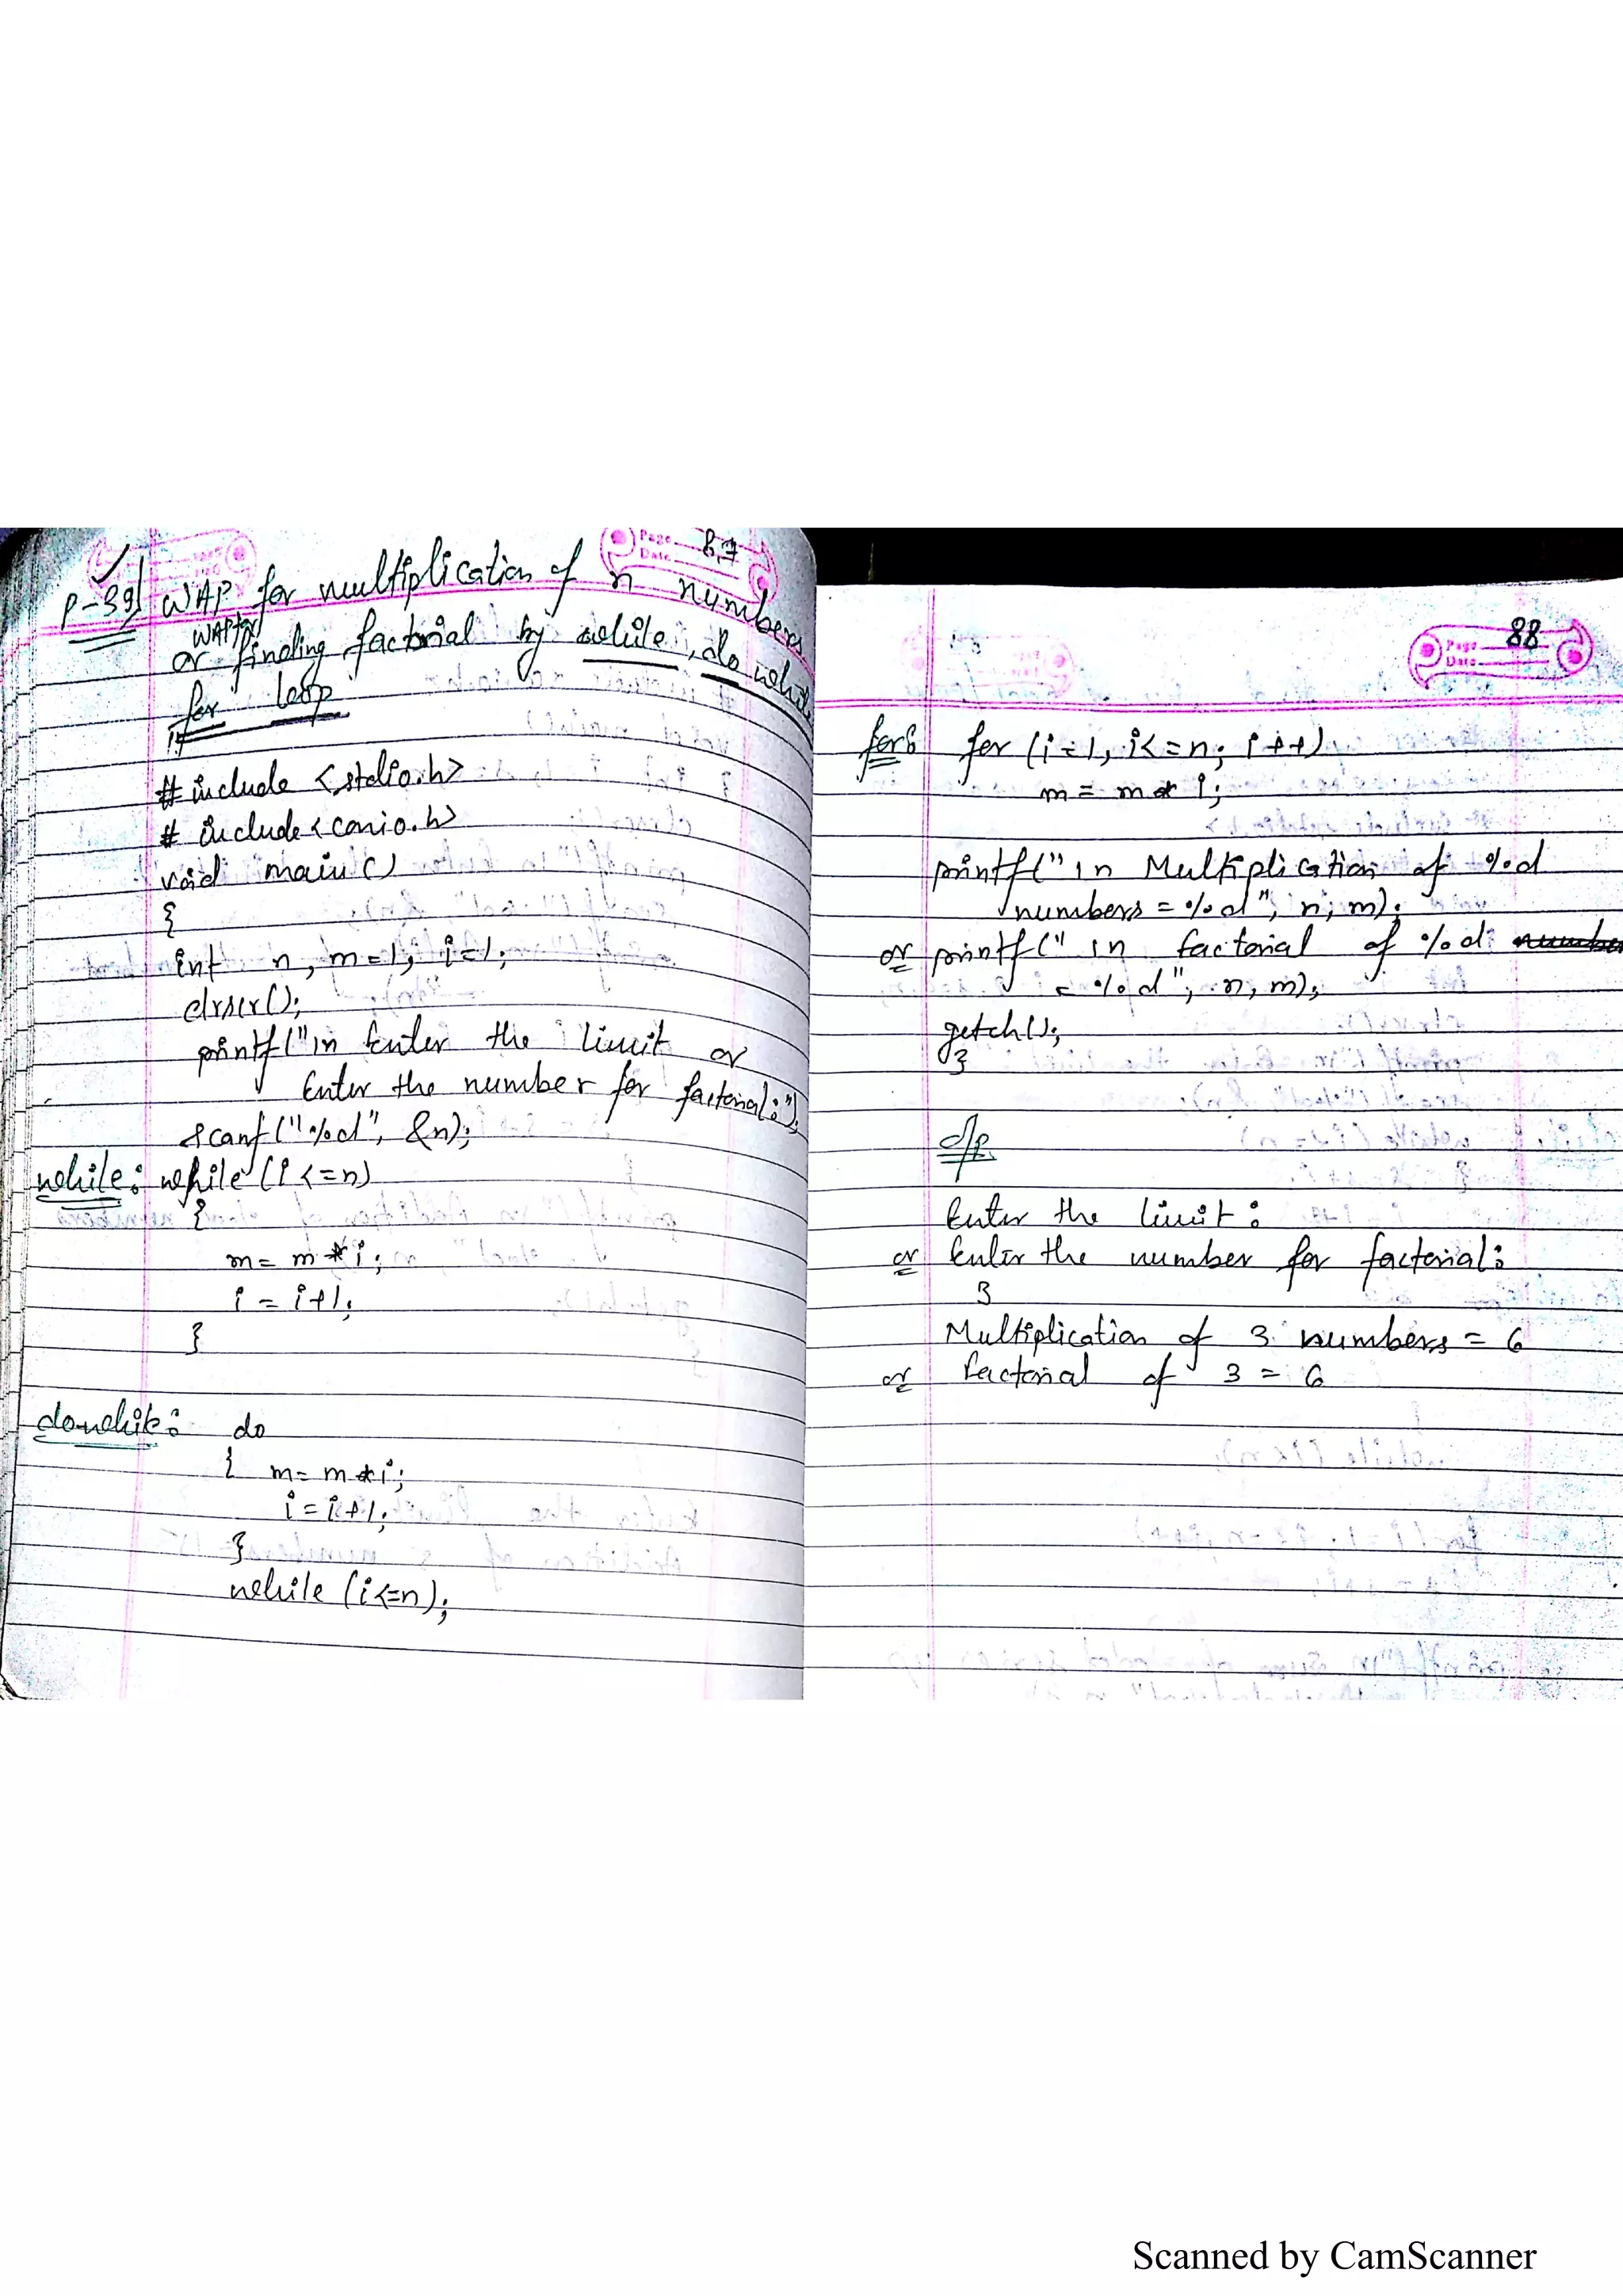 Page 87
Date
P-39] WAP for multiplication of n numbers
WAP for
or finding factorial by while, do while,
for loop
#include <stdio.h>
# include <conio.h>
void main()
{
int n, m=1, i=1;
clrscr();
printf("\n Enter the limit or
Enter the number for factorial:");
scanf("%d", &n);
while: while (i <=n)
{
m= m*i;
i = i+1;
}
do while: do
{ m= m*i;
i = i+1;
}
while (i<=n);
Page 88
Date
for: for (i=1, i<=n; i++)
m = m * i;
printf("\n Multiplication of %d
numbers = %d", n, m);
or printf("\n factorial of %d
= %d", n, m);
getch();
}
O/P.
Enter the limit:
or Enter the number for factorial:
3
Multiplication of 3 numbers = 6
or factorial of 3 = 6
Scanned by CamScanner